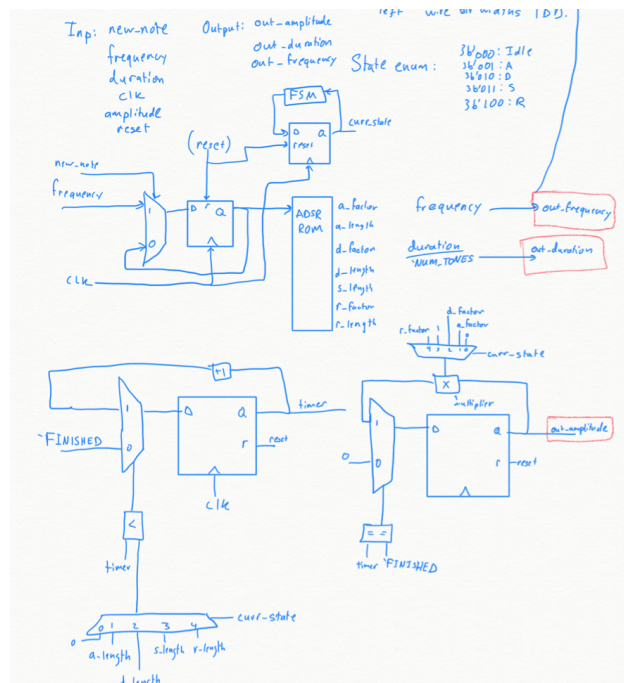 left wire bit widths (D1).
Inp: new_note
frequency
duration
clk
amplitude
reset
Output: out_amplitude
out_duration
out_frequency
State enum:
3b'000: Idle
3b'001: A
3b'010: D
3b'011: S
3b'100: R
FSM
D Q
reset
curr_state
(reset)
new_note
frequency
1
0
D r Q
clk
ADSR
ROM
a_factor
a_length
d_factor
d_length
s_length
r_factor
r_length
frequency
out_frequency
duration
`NUM_TONES
out_duration
+1
1
0
`FINISHED
D Q
r
timer
reset
clk
<
timer
0 1 2 3 4
curr_state
0
a_length
d_length
s_length
r_length
d_factor
r_factor 1 a_factor
0
4 3 2 1 0
curr_state
X
`multiplier
1
0
0
D Q
r
out_amplitude
reset
==
timer `FINISHED